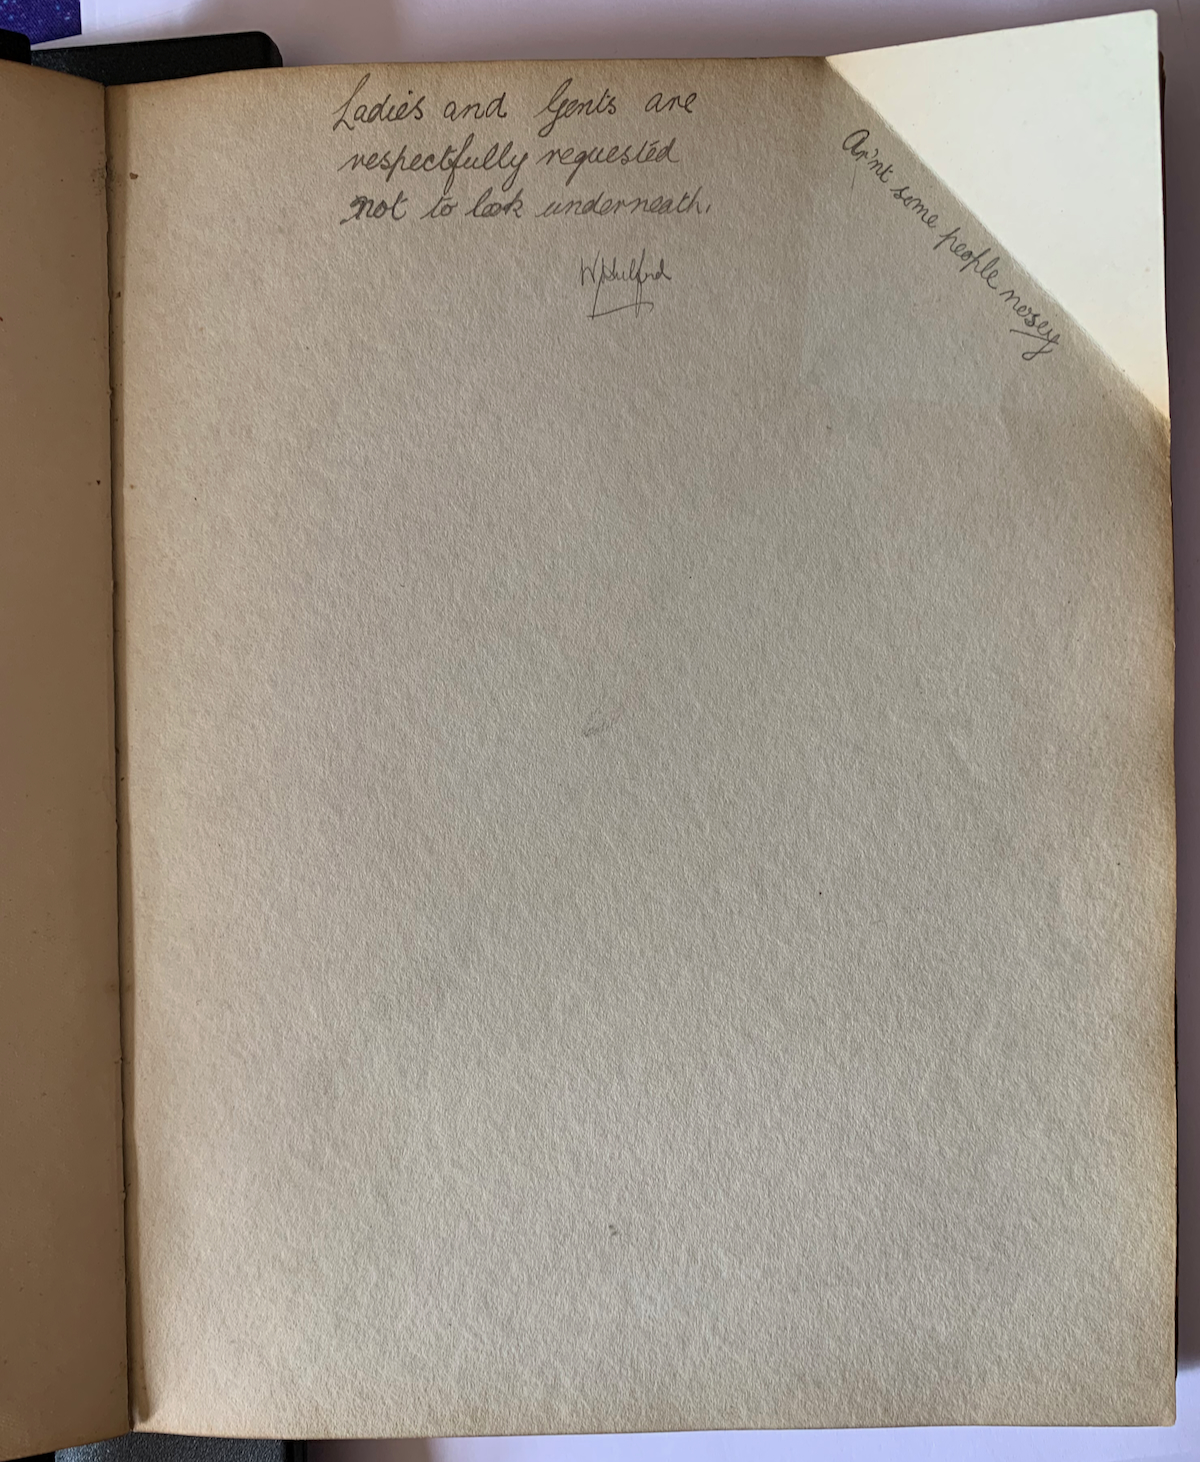 Ladies and Gents are
respectfully requested
not to look underneath.
Ar'nt some people nosey